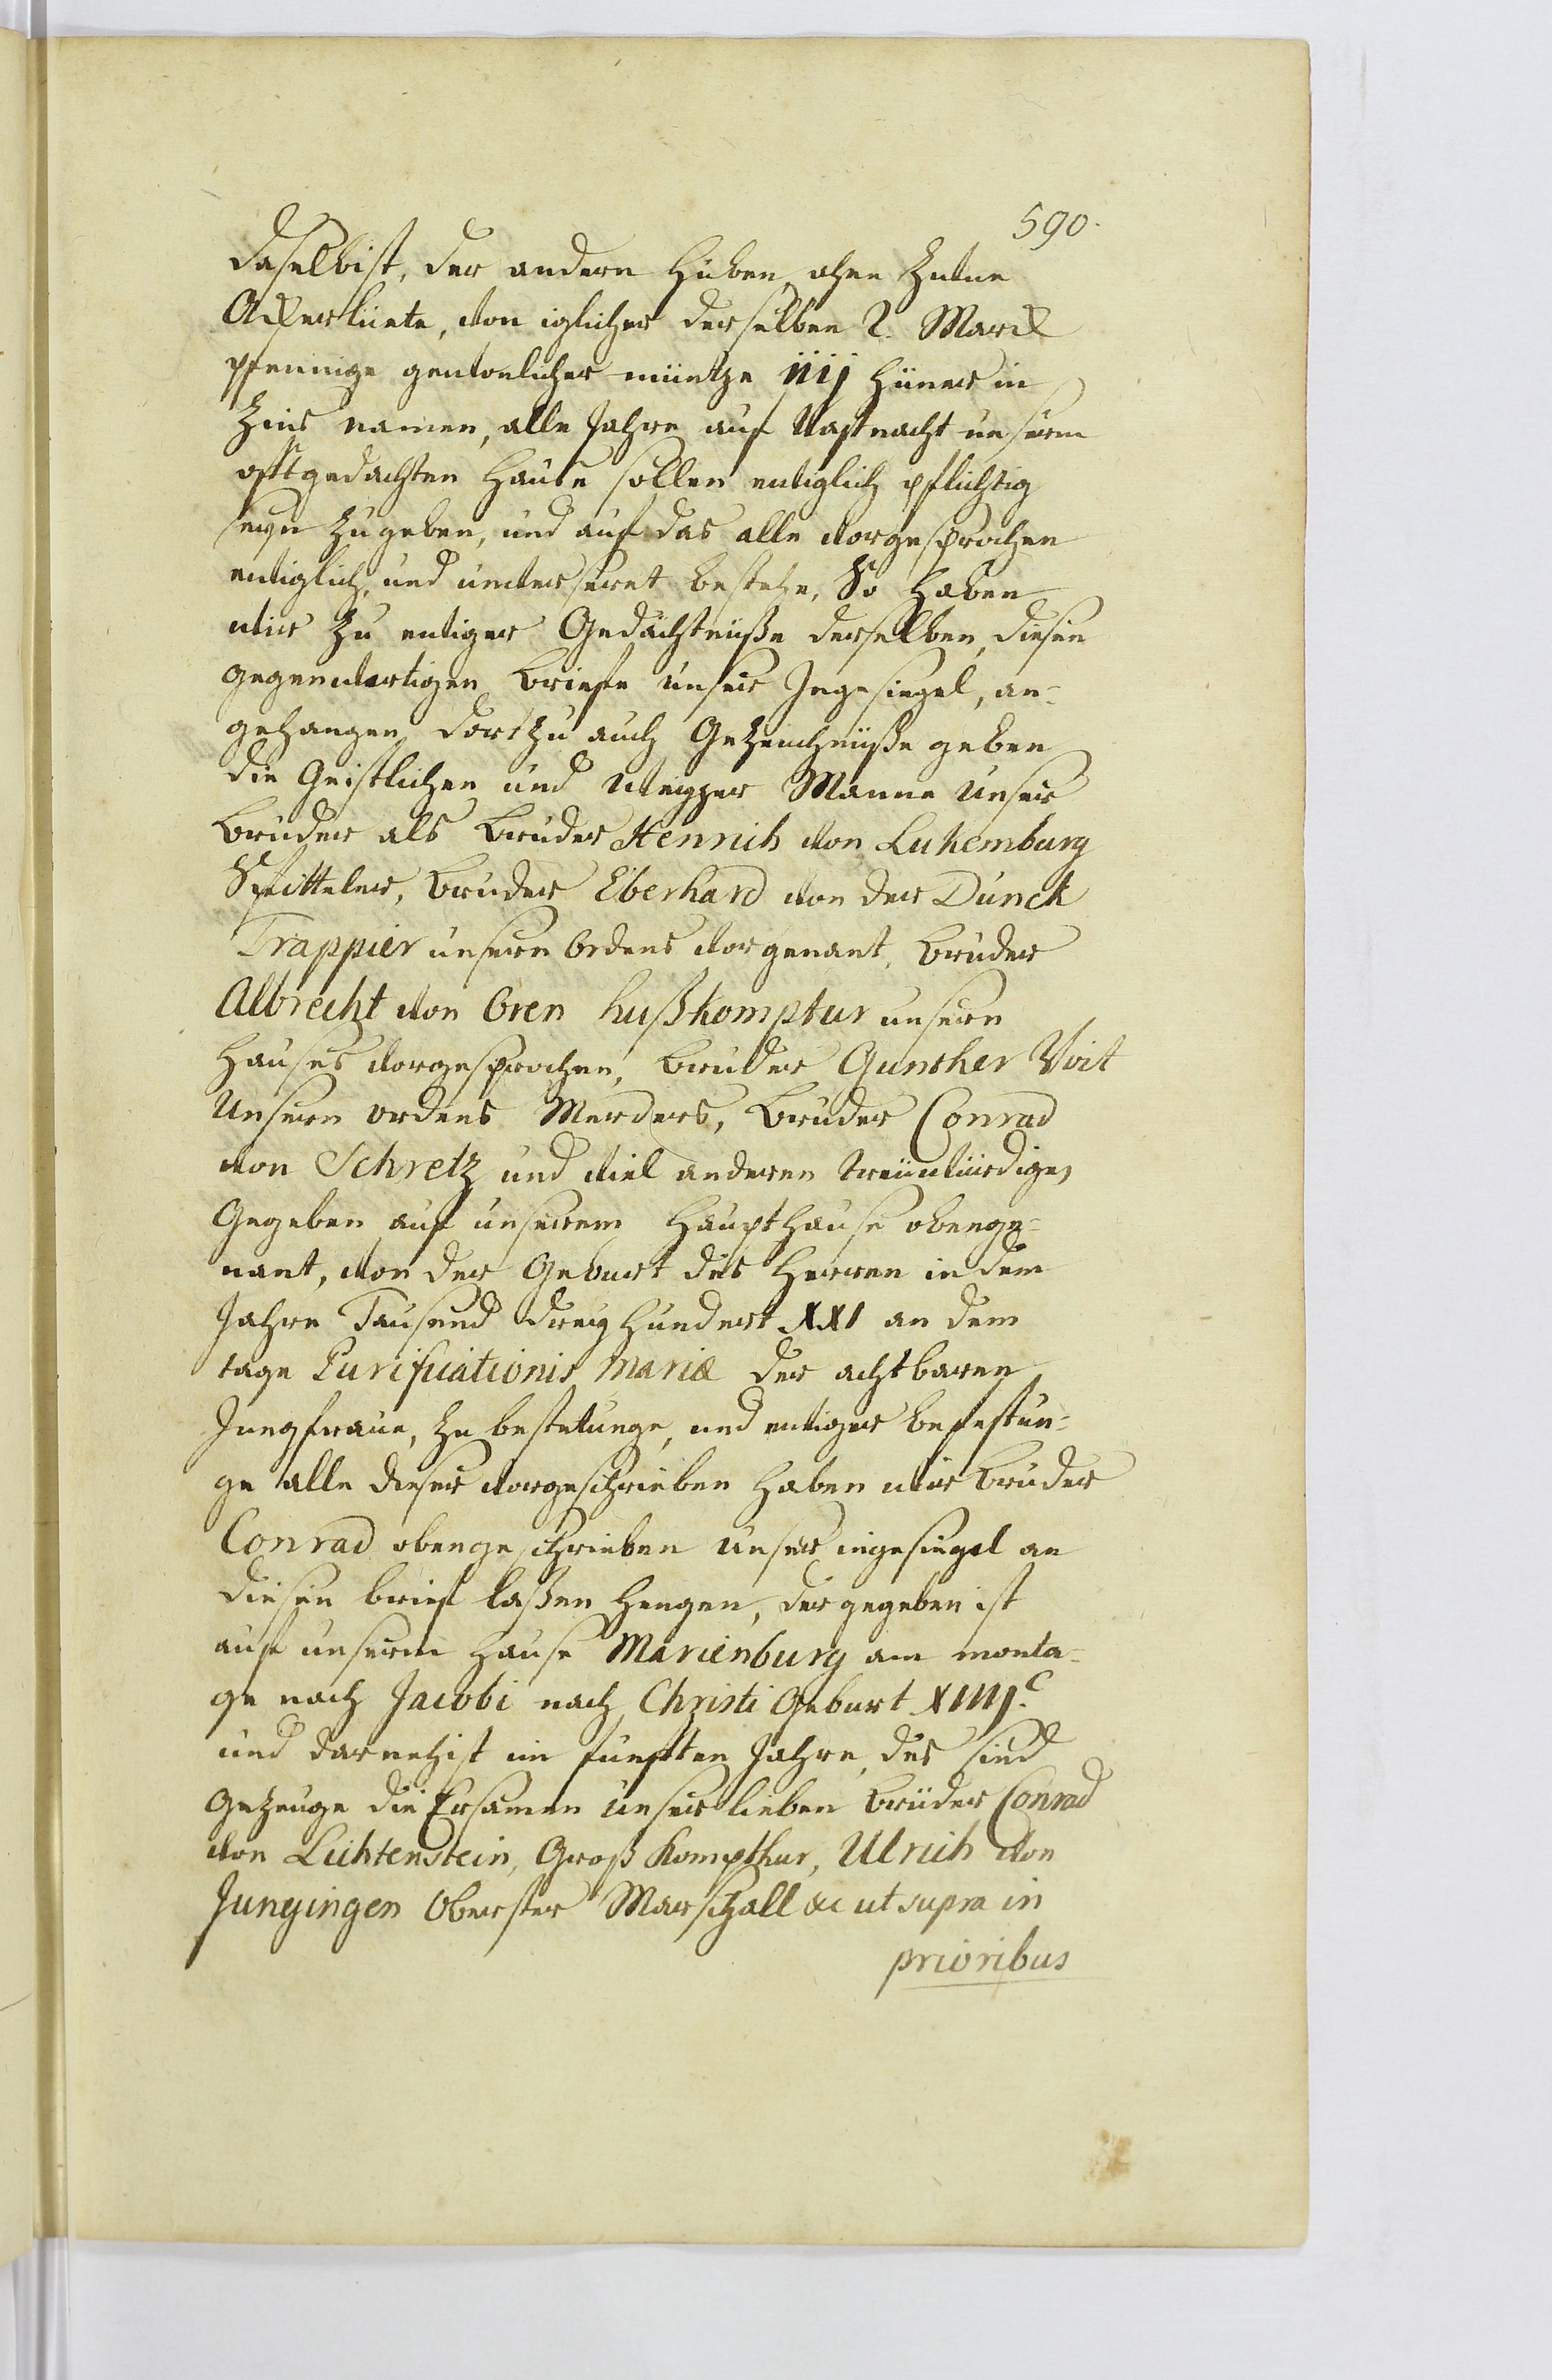 590.
daselbist, der andern Huben, ohne Zutue
Akkerliute, von iglicher derselben 2. Marck
pfennige gewonlicher müntze iiij Hüner in
Zins namen, alle Jahre auf Vastnacht unserm
offtgedachten Hause sollen ewiglich pflichtig
seyn zu geben, und auf das alle vorgesprochen
ewiglich, und unverseret bestehe, So haben
wir zu ewiger Gedächtnüße derselben, diesen
gegenwertigen Briefe unser Ingesiegel, an-
gehangen, dortzu auch Gezeuchnüße geben
die Geistlichen und Weyzer Manne Unser
Bruder als Bruder Henrich von Lutzemburg
Spitteler, Bruder Eberhard von der Dunck
Trappier unsern Ordens vorgenant, Bruder
Albrecht von Oren hußkomptur unsern
Hauses vorgesprochen, Bruder Gunther Voit
Unsern Ordens Merders, Bruder Conrad
von Schretz und viel anderen treüwürdigen
Gegeben auf unserem Haupthause obenge-
nant, von der Geburt des Herren in dem
Jahre Tausend dreyhundert XXI an dem
tage Purificationis Mariæ der achtbaren
Jungfraue, Zu bestetunge, und ewiger befestun-
ge alle dieser vorgeschrieben haben wir Bruder
Conrad obengeschrieben unser ingesiegel an
diesen brief laßen hengen, der gegeben ist
auf unserm Hause Marienburg am monta-
ge nach Jacobi nach Christi Geburt XIIIj.c
und darnehist im funften Jahre, des sind
Gezeuge die Ersamen unser lieben Brüder Conrad
von Lichtenstein, Groß Kompthur, Ulrich von
Jungingen Oberster Marschall &c ut supra in
prioribus